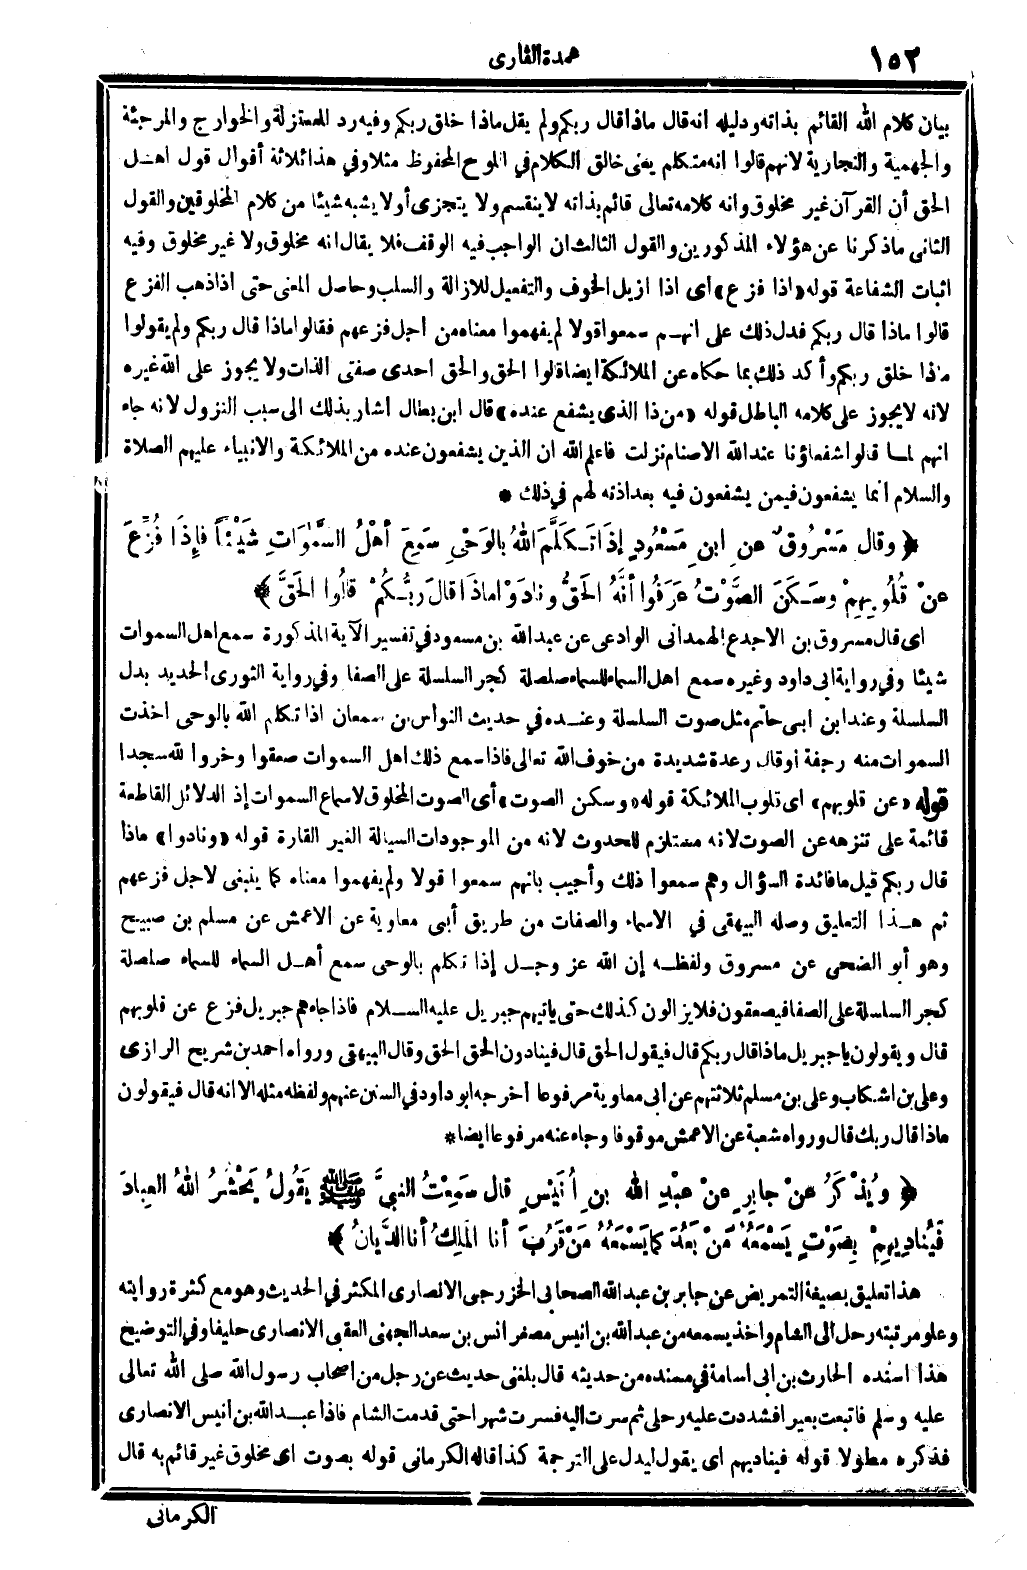 ١٥٢ عمدة القارى
بيان كلام الله القائم بذاته ودليله انه قال ماذا قال ربكم ولم يقل ماذا خلق ربكم وفيه رد للمعتزلة والخوارج والمرجئة
والجهمية والنجارية لانهم قالوا انه متكلم يعنى خالق الكلام في اللوح المحفوظ مثلا وفي هذا ثلاثة أقوال قول اهل
الحق أن القرآن غير مخلوق وانه كلامه تعالى قائم بذاته لا ينقسم ولا يتجزى أولا يشبه شيئا من كلام المخلوقين والقول
الثانى ماذكرنا عن هؤلاء المذكورين والقول الثالث ان الواجب فيه الوقف فلا يقال انه مخلوق ولا غير مخلوق وفيه
اثبات الشفاعة قوله «اذا فزع» أى اذا ازيل الخوف والتفعيل للازالة والسلب وحاصل المعنى حتى اذا ذهب الفزع
قالوا ماذا قال ربكم فدل ذلك على انهم سمعوا قولا لم يفهموا معناه من اجل فزعهم فقالوا ماذا قال ربكم ولم يقولوا
ماذا خلق ربكم وأكد ذلك بما حكاه عن الملائكة ايضا قالوا الحق والحق احدى صفتى الذات ولا يجوز على الله غيره
لانه لا يجوز على كلامه الباطل قوله «من ذا الذى يشفع عنده» قال ابن بطال اشار بذلك الى سبب النزول لانه جاء
انهم لما قالوا شفعاؤنا عند الله الاصنام نزلت فاعلم الله ان الذين يشفعون عنده من الملائكة والانبياء عليهم الصلاة
والسلام انما يشفعون فيمن يشفعون فيه بعد اذنه لهم في ذلك *
﴿ وقال مَسْرُوقٌ عن ابنِ مَسْعُودٍ إذَا تَكَلَّمَ اللهُ بالوَحْىِ سَمِعَ أهْلُ السَّمٰوَاتِ شَيْئاً فإِذَا فُزِّعَ
عنْ قُلُوبِهِمْ وسَكَنَ الصَّوْتُ عَرَفُوا أنَّهُ الحَقُّ ونادَوْا ماذَا قالَ ربُّكُمْ قالُوا الحَقَّ ﴾ *
اى قال مسروق بن الاجدع الهمدانى الوادعى عن عبد الله بن مسعود في تفسير الآية المذكورة سمع اهل السموات
شيئا وفي رواية ابى داود وغيره سمع اهل السماء للسماء صلصلة كجر السلسلة على الصفا وفي رواية الثورى الحديد بدل
السلسلة وعند ابن ابى حاتم مثل صوت السلسلة وعنده في حديث النواس بن سمعان اذا تكلم الله بالوحى اخذت
السموات منه رجفة أو قال رعدة شديدة من خوف الله تعالى فاذا سمع ذلك اهل السموات صعقوا وخروا لله سجدا
قوله «عن قلوبهم» اى قلوب الملائكة قوله «وسكن الصوت» أى الصوت المخلوق لاسماع السموات إذ الدلائل القاطعة
قائمة على تنزهه عن الصوت لانه مستلزم للحدوث لانه من الموجودات السيالة الغير القارة قوله «ونادوا» ماذا
قال ربكم قيل ما فائدة السؤال وهم سمعوا ذلك وأجيب بانهم سمعوا قولا ولم يفهموا معناه كما ينبغى لاجل فزعهم
ثم هذا التعليق وصله البيهقى في الاسماء والصفات من طريق أبى معاوية عن الاعمش عن مسلم بن صبيح
وهو أبو الضحى عن مسروق ولفظه إن الله عز وجل إذا تكلم بالوحى سمع أهل السماء للسماء صلصلة
كجر السلسلة على الصفا فيصعقون فلا يزالون كذلك حتى ياتيهم جبريل عليه السلام فاذا جاءهم جبريل فزع عن قلوبهم
قال ويقولون يا جبريل ماذا قال ربكم قال فيقول الحق قال فينادون الحق الحق وقال البيهقى ورواه احمد بن شريح الرازى
وعلى بن اشكاب وعلى بن مسلم ثلاثتهم عن ابى معاوية مرفوعا أخرجه ابو داود في السنن عنهم ولفظه مثله الا انه قال فيقولون
ماذا قال ربك قال ورواه شعبة عن الاعمش موقوفا وجاء عنه مرفوعا ايضا *
﴿ ويُذْكَرُ عنْ جابِرٍ عنْ عبْدِ اللهِ بنِ أُنَيْسٍ قال سَمِعْتُ النبىَّ ﷺ يَقُولُ يَحْشُرُ اللهُ العِبادَ
فَيُنادِيهِمْ بِصَوْتٍ يَسْمَعُهُ مَنْ بَعُدَ كمَا يَسْمَعُهُ مَنْ قَرُبَ أنا المَلِكُ أنا الدَّيَّانُ ﴾
هذا تعليق بصيغة التمريض عن جابر بن عبد الله الصحابى الخزرجى الانصارى المكثر في الحديث وهو مع كثرة روايته
وعلو مرتبته رحل الى الشام واخذ يسمعه من عبد الله بن انيس مصغر انس بن سعد الجهنى العقبى الانصارى حليفا وفي التوضيح
هذا اسنده الحارث بن ابى اسامة في مسنده من حديثه قال بلغنى حديث عن رجل من اصحاب رسول الله صلى الله تعالى
عليه وسلم فابتعت بعيرا فشددت عليه رحلى ثم سرت اليه فسرت شهرا حتى قدمت الشام فاذا عبد الله بن أنيس الانصارى
فذكره مطولا قوله فيناديهم اى يقول ليدل على الترجمة كذا قاله الكرمانى قوله بصوت اى مخلوق غير قائم به قال
الكرمانى